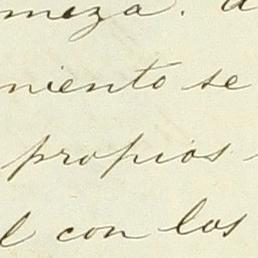 meza. a
niento se
propios
l con los